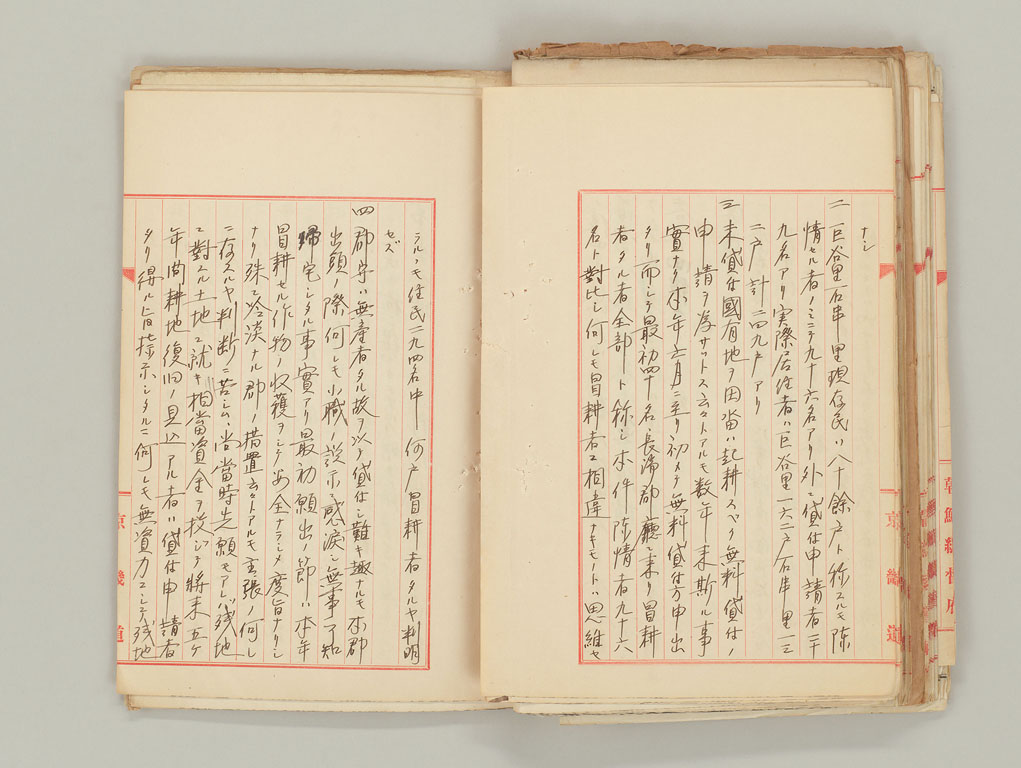 ナシ
二 巨谷里石串里現存民ハ八十餘戸ト称スルモ陳
情セル者ノミニテ九十六名アリ外ニ貸付申請者三十
九名アリ実際居住者ハ巨谷里一六二戸石串里一三
二戸計二四九戸アリ
三 未貸付國有地ヲ田畓ハ起耕スベク無料貸付ノ
申請ヲ為サットス云々トアルモ数年来斯ル事
實ナク本年六月ニ至リ初メテ無料貸付方申出
タリ而シテ最初四十名長湍郡廳ニ来リ冒耕
者タル者全部ト称シ本件陳情者九十六
名ト對比シ何レモ冒耕者ニ相違ナキモノトハ思維セ
ラルヽモ住民二九四名中何戸冒耕者タルヤ判明
セズ
四 郡守ハ無産者タル故ヲ以テ貸付シ難キ趣ナルモ本郡
出頭ノ際何レモ小職ノ説示ニ感涙シ無事
帰宅シタル事實アリ最初願出ノ節ハ本年
冒耕セル作物ノ収獲ヲシテ安全ナラシメ度旨ナリシ
ナリ殊ニ冷淡ナル郡ノ措置云々トアルモ主張ノ何レ
ニ存スルヤ判断ニ苦シム、尚當時先願モアレバ残地
ニ對スル土地ニ就キ相當資金ヲ投ジテ將来五ヶ
年間耕地復旧ノ見込アル者ハ貸付申請者
タリ得ル旨指示シタルニ何レモ無資力ニシテ残地
朝鮮総督府
京畿道
京畿道